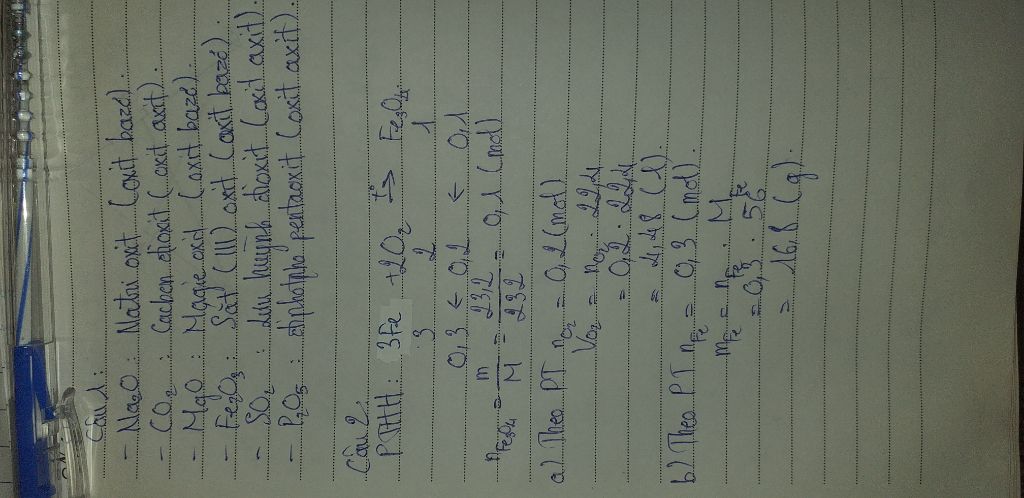 Câu 1:
- Na2O : Natri oxit (oxit bazơ).
- CO2 : Cacbon đioxit (oxit axit).
- MgO : Magie oxit (oxit bazơ).
- Fe2O3 : Sắt (III) oxit (oxit bazơ).
- SO2 : Lưu huỳnh đioxit (oxit axit).
- P2O5 : điphotpho pentaoxit (oxit axit).
Câu 2.
PTHH : 3Fe + 2O2 t° → Fe3O4
3 2 1
0,3 ← 0,2 ← 0,1
nFe3O4 = m/M = 23,2/232 = 0,1 (mol)
a) Theo PT nO2 = 0,2 (mol)
VO2 = nO2 . 22,4
= 0,2 . 22,4
= 4,48 (l).
b) Theo PT nFe = 0,3 (mol).
mFe = nFe . MFe
= 0,3 . 56
= 16,8 (g).